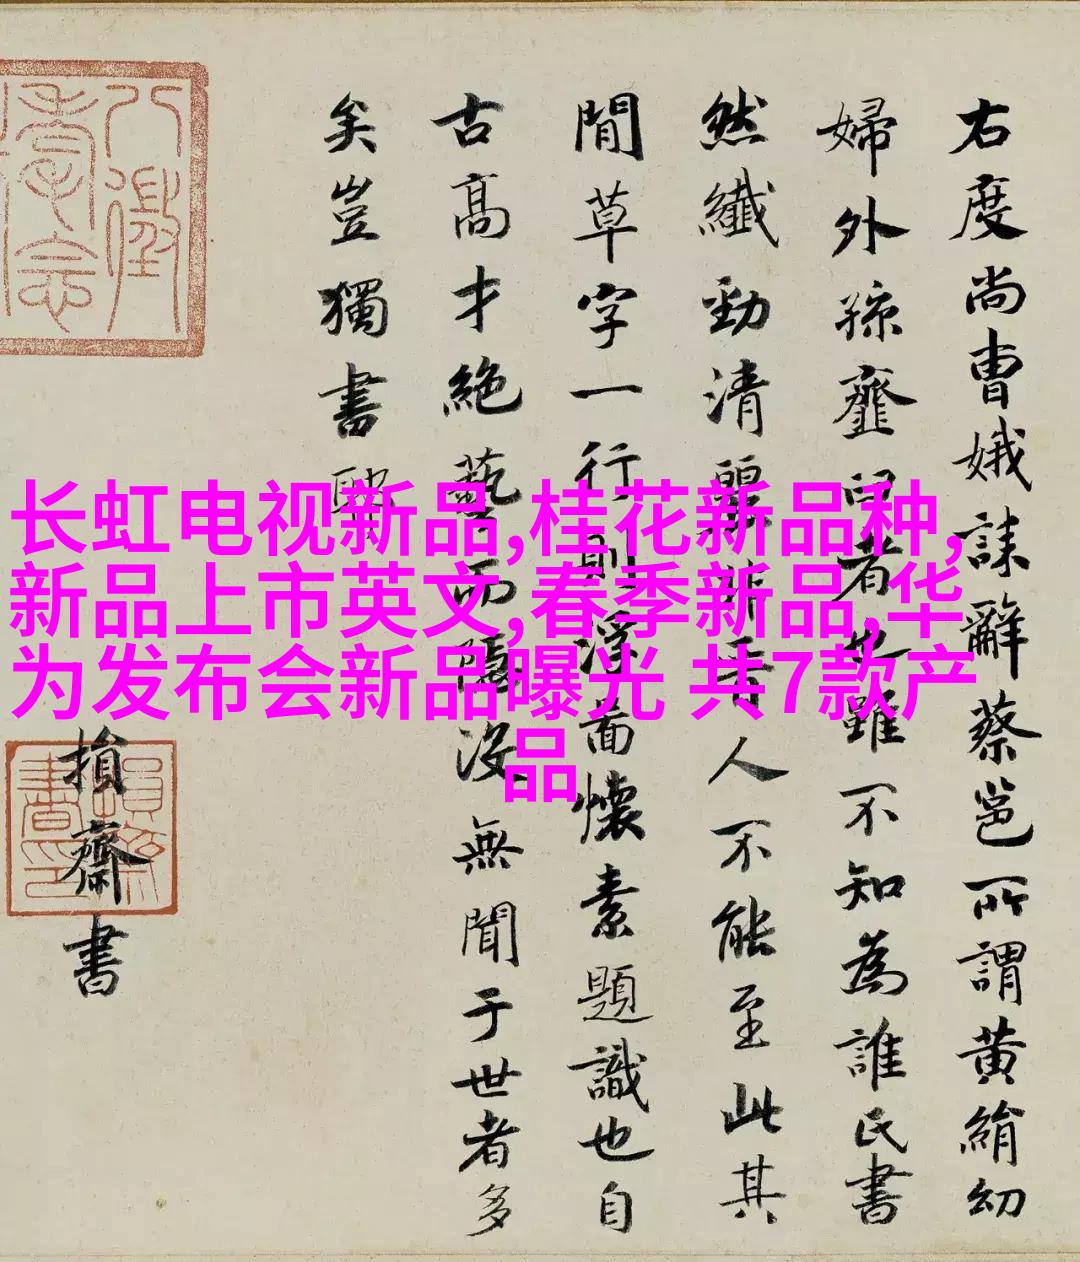 右度尚曹娥誄辭蔡邕所謂黃絹幼
婦外孫韲臼者也雖不知為誰氏書
然纖勁清麗非晉人不能至此其
閒草字一行則浮啚懷素題識也自
古高才絕藝而隱沒無聞于世者多
矣豈獨書耶
損齋書
八徵
耄念
損齋書印
长虹电视新品,桂花新品种,
新品上市英文,春季新品,华
为发布会新品曝光 共7款产
品